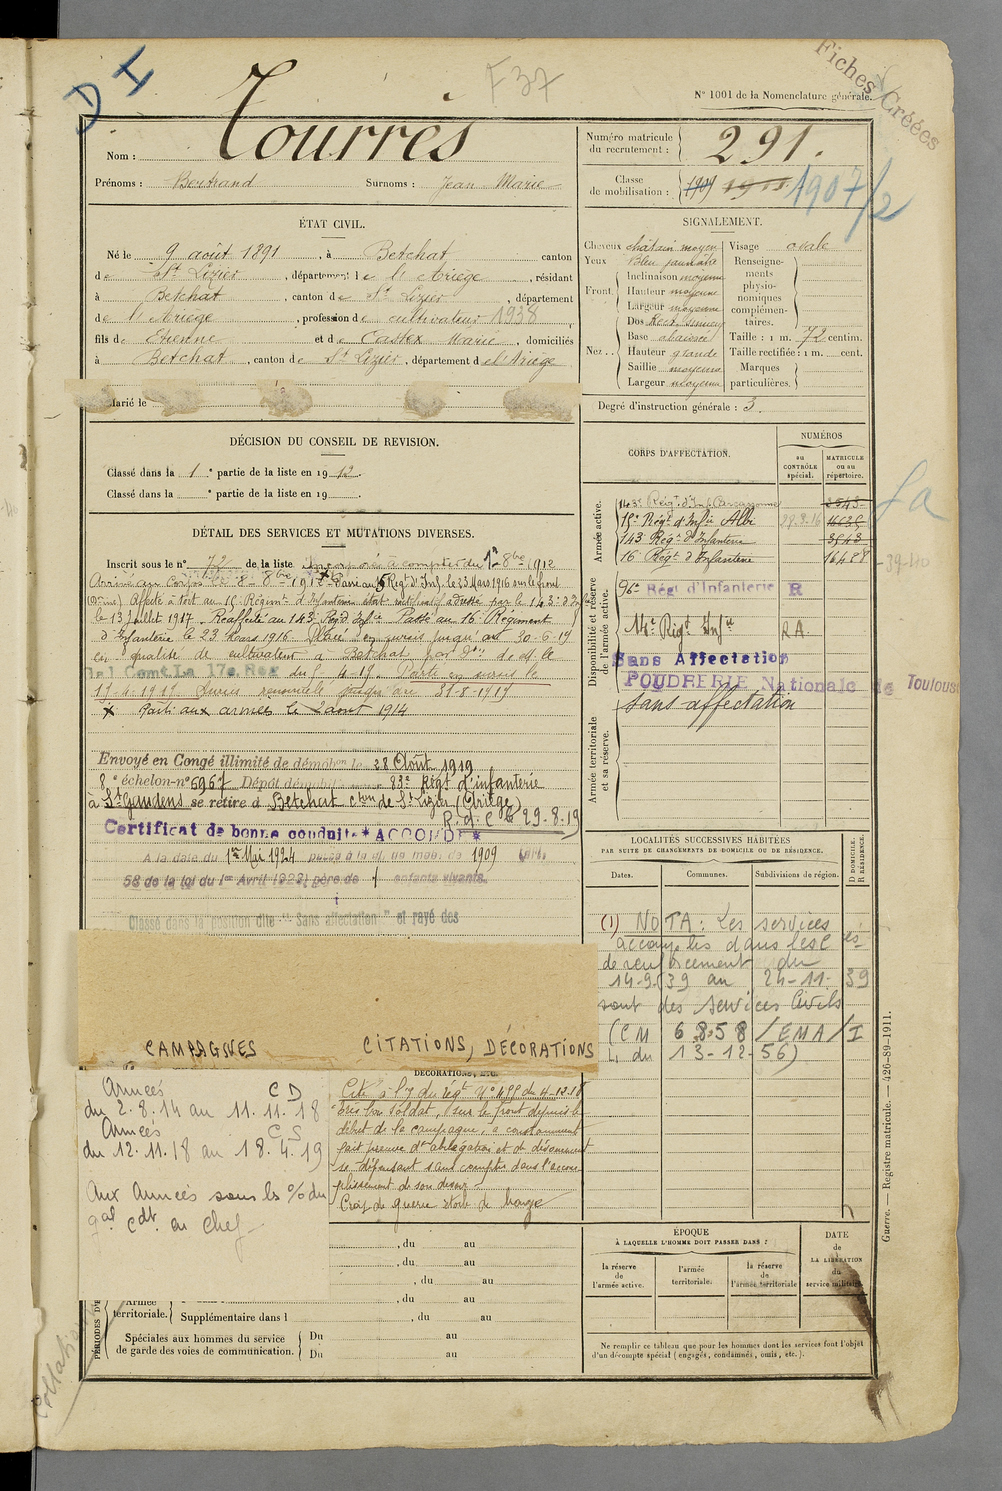 D I
F 37
Fiches Créées
N° 1001 de la Nomenclature générale.
Nom : Tourrès
Prénoms : Bertrand Surnoms : Jean Marie
Numéro matricule du recrutement : 291.
Classe de mobilisation : 1909 1911 1907/2
ÉTAT CIVIL.
Né le 9 août 1891, à Betchat canton
de St Lizier, département de l'Ariège, résidant
à Betchat, canton de St Lizier, département
de l'Ariège, profession de cultivateur 1938
fils de Etienne et de Castex Marie, domiciliés
à Betchat, canton de St Lizier, département de l'Ariège
Marié le
SIGNALEMENT.
Cheveux châtain moyen
Yeux Bleu jaunâtre
Front. Inclinaison moyenne
Hauteur moyenne
Largeur moyenne
Nez.. Dos Rect. sinueux
Base abaissée
Hauteur grande
Saillie moyenne
Largeur moyenne
Visage ovale
Renseignements physionomiques complémentaires.
Taille : 1 m. 72 centim.
Taille rectifiée : 1 m. cent.
Marques particulières.
Degré d'instruction générale : 3.
DÉCISION DU CONSEIL DE REVISION.
Classé dans la 1 e partie de la liste en 1912.
Classé dans la e partie de la liste en 19 .
DÉTAIL DES SERVICES ET MUTATIONS DIVERSES.
Inscrit sous le n° 72 de la liste Incorporé à compter du 1er 8bre 1912
Arrivé au Corps le 8 8bre 1912 Passé au Régt d'Inf. le 23 Mars 1916 sur le front
Affecté à tort au 15e Régiment d'Infanterie état rectificatif adressé par le 143e d'Inf
le 13 Juillet 1917. Réaffecté au 143e Régt d'Inftie Passé au 16e Régiment
d'Infanterie le 23 Mars 1916. Placé en sursis jusqu'au 30-6-19
en qualité de cultivateur à Betchat par don de Mr le
Gal Comt La 17e Reg du 5-4-19. Parti en sursis le
17-4-1919 Sursis renouvelé jusqu'au 31-8-1919
x Parti aux armées le 2 aout 1914
Envoyé en Congé illimité de démobon le 28 Août 1919
8e échelon n° 5967 Dépôt démobilisateur 83e Régt d'infanterie
à St Gaudens se retire à Betchat cton de St Lizier (Ariège)
R.d.C le 29-8-19
Certificat de bonne conduite * ACCORDÉ *
A la date du 1er Mai 1924 passé à la cl. de mob. de 1909 (art.
58 de la loi du 1er Avril 1923) père de 1 enfants vivants.
Classé dans la position dite "Sans affectation" et rayé des
CORPS D'AFFECTATION.
NUMÉROS
au CONTRÔLE spécial.
MATRICULE ou au répertoire.
Armée active.
143e Régt d'Inf. Carcassonne 3543
15e Régt d'Inftie Albi 29.8.16 16635
143e Régt d'Infanterie 3543
16e Régt d'Infanterie 16488
Disponibilité et réserve de l'armée active.
96e Régt d'Infanterie R
14e Régt Inftie R.A.
Sans Affectation
POUDRERIE Nationale de Toulouse
sans affectation
Armée territoriale et sa réserve.
Sa
-39-40
LOCALITÉS SUCCESSIVES HABITÉES
PAR SUITE DE CHANGEMENTS DE DOMICILE OU DE RÉSIDENCE.
Dates. Communes. Subdivisions de région.
D DOMICILE. R RÉSIDENCE.
(1) NOTA : Les services
accomplis dans les Cies
de renforcement du
14-9-39 au 24-11-39
sont des services Civils
(CM 6858/EMA/I
L. du 13-12-56)
CAMPAGNES
CITATIONS, DÉCORATIONS
DÉCORATIONS, ETC.
Armées C D
du 2.8.14 au 11.11.18
Armées C S
du 12.11.18 au 18.4.19
Aux Armées sous les o/o du
gal cdt en chef
Cité à l'o/ du régt N° 499 du 4-12-18
"Très bon soldat, sur le front depuis le
début de la campagne, a constamment
fait preuve d'abnégation et de dévouement
se dépensant sans compter dans l'accom
plissement de son devoir
Croix de guerre étoile de bronze
, du au
, du au
, du au
, du au
Armée territoriale.
Supplémentaire dans l , du au
Spéciales aux hommes du service de garde des voies de communication.
Du au
Du au
PÉRIODES D'E
ÉPOQUE
À LAQUELLE L'HOMME DOIT PASSER DANS :
la réserve de l'armée active.
l'armée territoriale.
la réserve de l'armée territoriale
DATE de LA LIBÉRATION du service militaire.
Ne remplir ce tableau que pour les hommes dont les services font l'objet
d'un décompte spécial (engagés, condamnés, omis, etc.).
Guerre. — Registre matricule. — 426-89-1911.